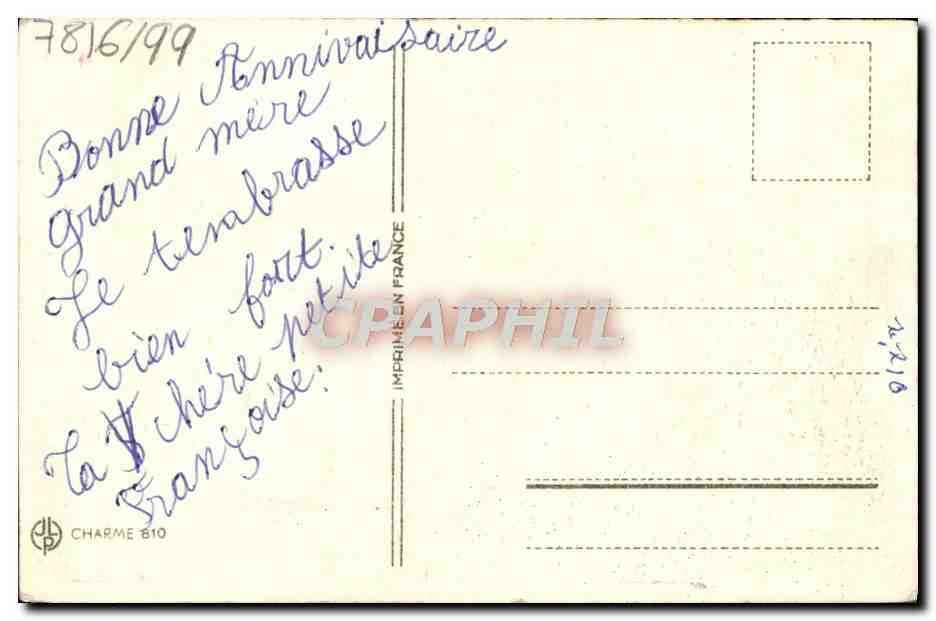 7816/99
Bonne Annivaisaire
grand mère
Je tenbrasse
bien fort.
Ta chére petite
Françoise.
IMPRIMÉ EN FRANCE
CPAPHIL
JLP
CHARME 810